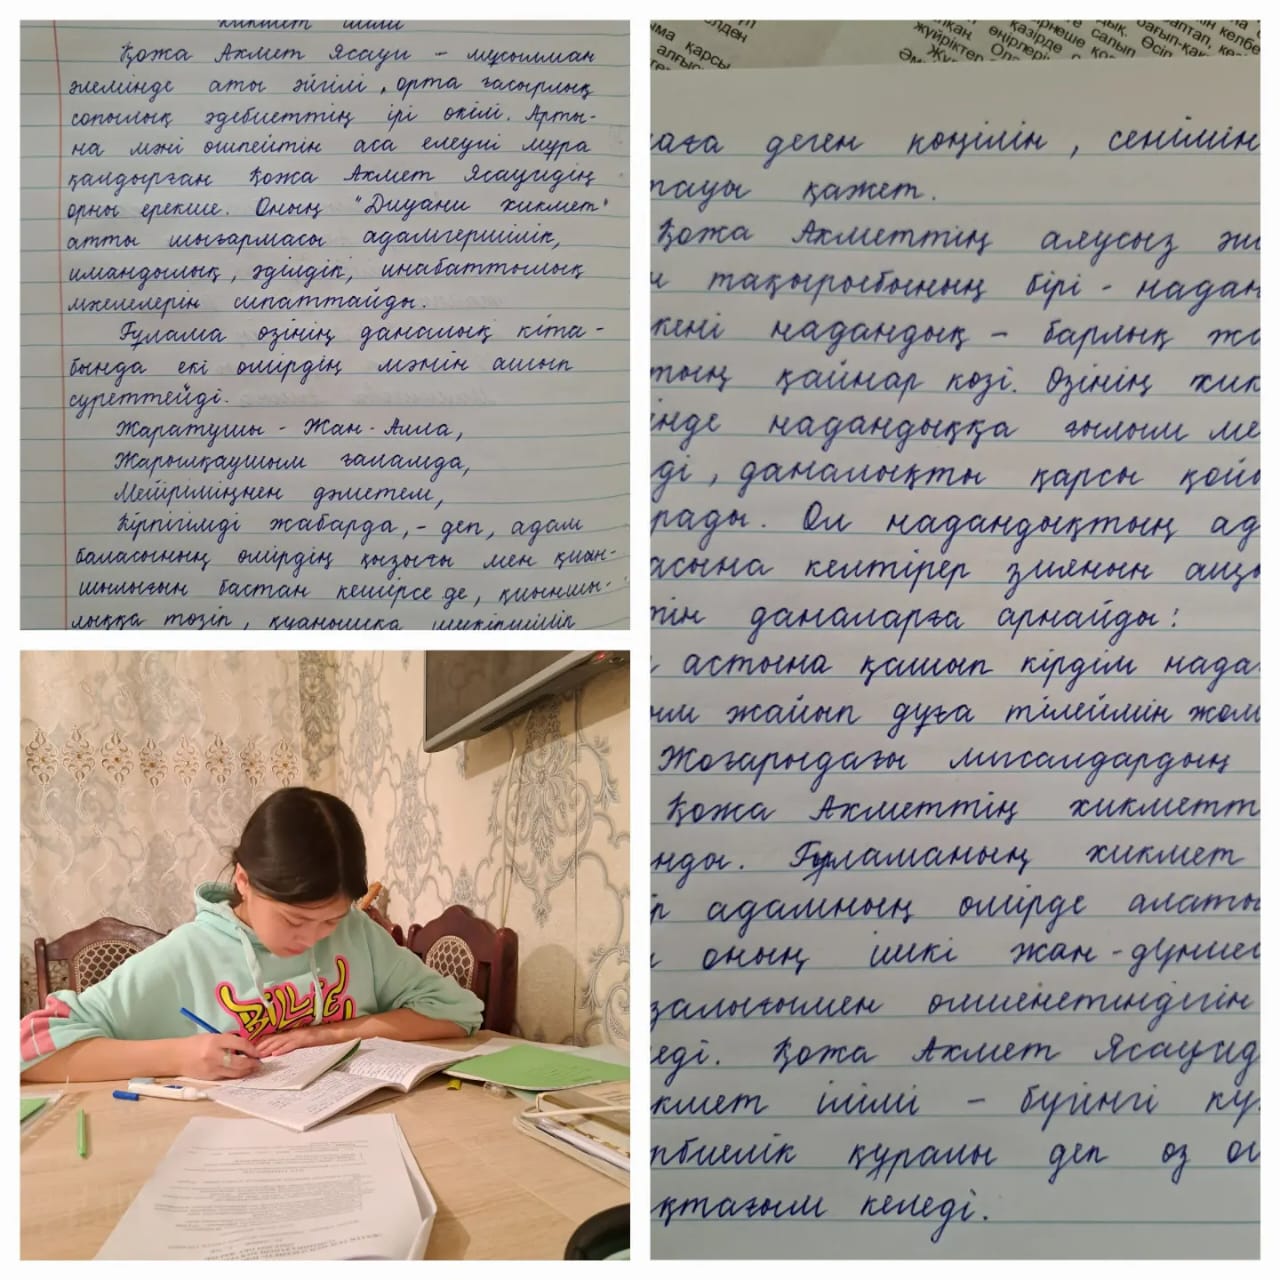 хикмет ілімі
Қожа Ахмет Ясауи – мұсылман
әлемінде аты әйгілі, орта ғасырлық
сопылық әдебиеттің ірі өкілі. Арты-
на мәні өшпейтін аса елеулі мұра
қалдырған Қожа Ахмет Ясауидің
орны ерекше. Оның "Диуани хикмет"
атты шығармасы адамгершілік,
имандылық, әділдік, инабаттылық
мәселелерін сипаттайды.
Ғұлама өзінің даналық кіта-
бында екі өмірдің мәнін ашып
суреттейді.
Жаратушы - Жан - Алла,
Жарылқаушым ғаламда,
Мейіріміңнен дәметем,
Кірпігімді жабарда, – деп, адам
баласының өмірдің қызығы мен қиын-
шылығын бастан кешірсе де, қиыншы-
лыққа төзіп, қуанышқа шүкіршілік
BILLIE
ұма қарсы
алғыс
жүйріктер
қазірде
салып
бағып-қақ
Өсіп
аға деген көңілін, сенімін
тауы қажет.
Қожа Ахметтің аяусыз
тақырыбының бірі - надан
кені надандық – барлық жа
тың қайнар көзі. Өзінің хик
інде надандыққа ғылым ме
ді, даналықты қарсы қой
рады. Ол надандықтың ад
асына келтірер зиянын
тін даналарға арнайды:
астына қашып кірдім нада
ым жайып дұға тілеймін
Жоғарыдағы мысалдардың
Қожа Ахметтің хикметт
нды. Ғұламаның хикмет
р адамның өмірде алаты
оның ішкі жан-дүние
залығымен өлшенетіндігін
еді. Қожа Ахмет Ясауид
кмет ілімі – бүгінгі кү
рбиелік құралы деп өз
қтағым келеді.